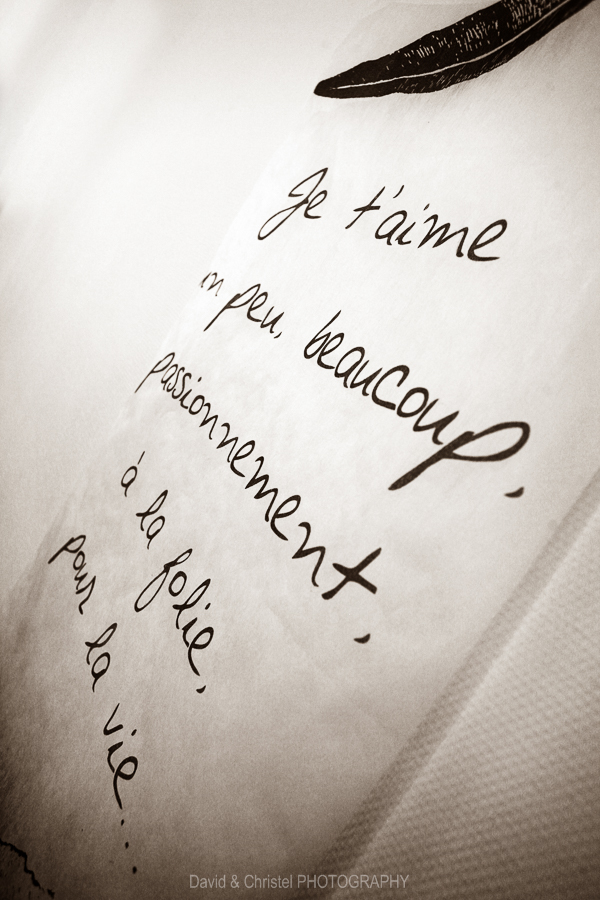 Je t'aime
un peu, beaucoup,
passionnément,
à la folie,
pour la vie...
David & Christel PHOTOGRAPHY